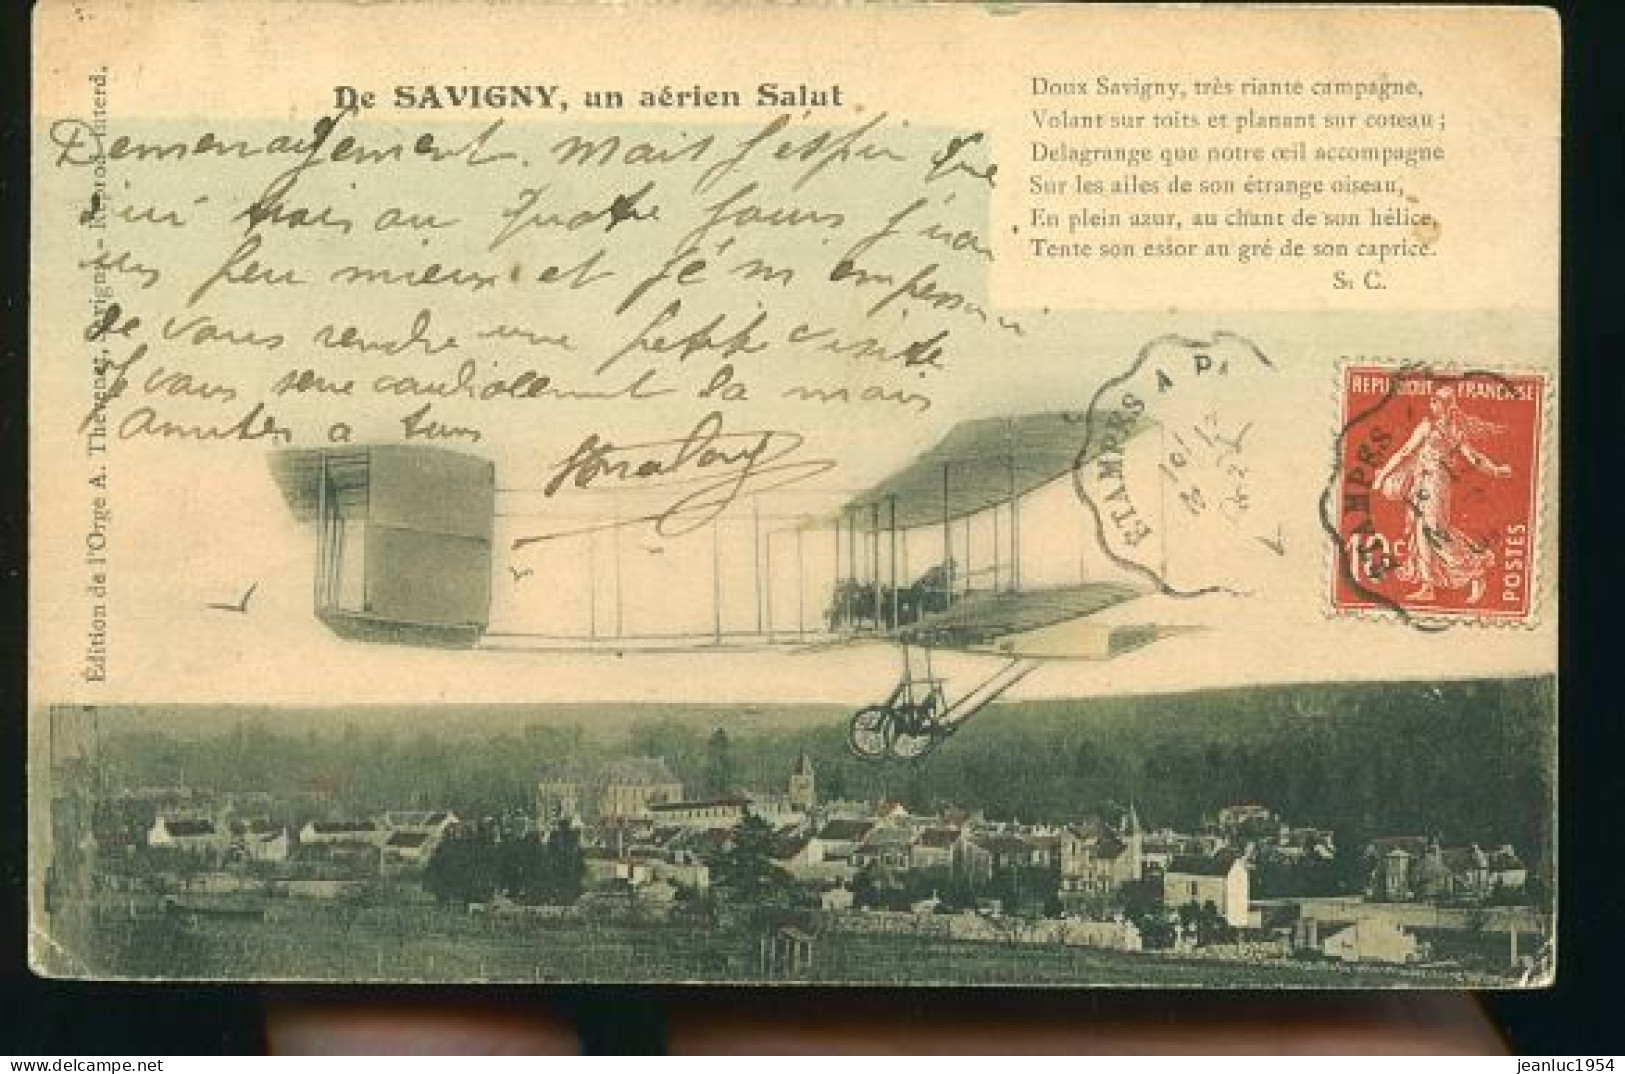 De SAVIGNY, un aérien Salut
Doux Savigny, très riante campagne,
Volant sur toits et planant sur coteau ;
Delagrange que notre œil accompagne
Sur les ailes de son étrange oiseau,
En plein azur, au chant de son hélice,
Tente son essor au gré de son caprice.
S. C.
Demenagement. Mais j'espère que
d'ici trois ou quatre jours j'irai
un peu mieux et je m'
de vous rendre une petite visite
Je vous serre cordialement la main
Amities a tous
Édition de l'Orge A. Thévenet, Savigny. - Reprod. interd.
ETAMPES A P.
REPUBLIQUE FRANÇAISE
10c
POSTES
ETAMPES
jeanluc1954